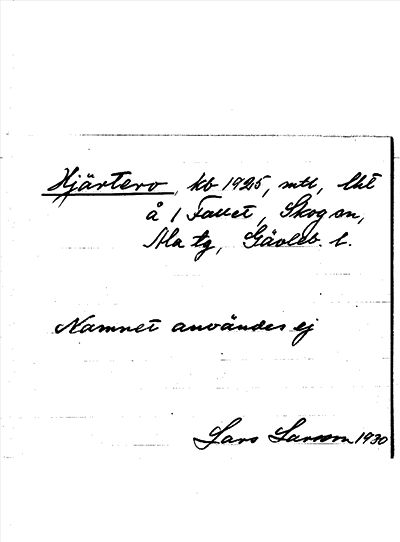 Hjärtero, kb 1925, mtl, lht
å 1 Fallet, Skog sn,
Ala tg, Gävleb. l.
Namnet användes ej
Lars Larsson 1930